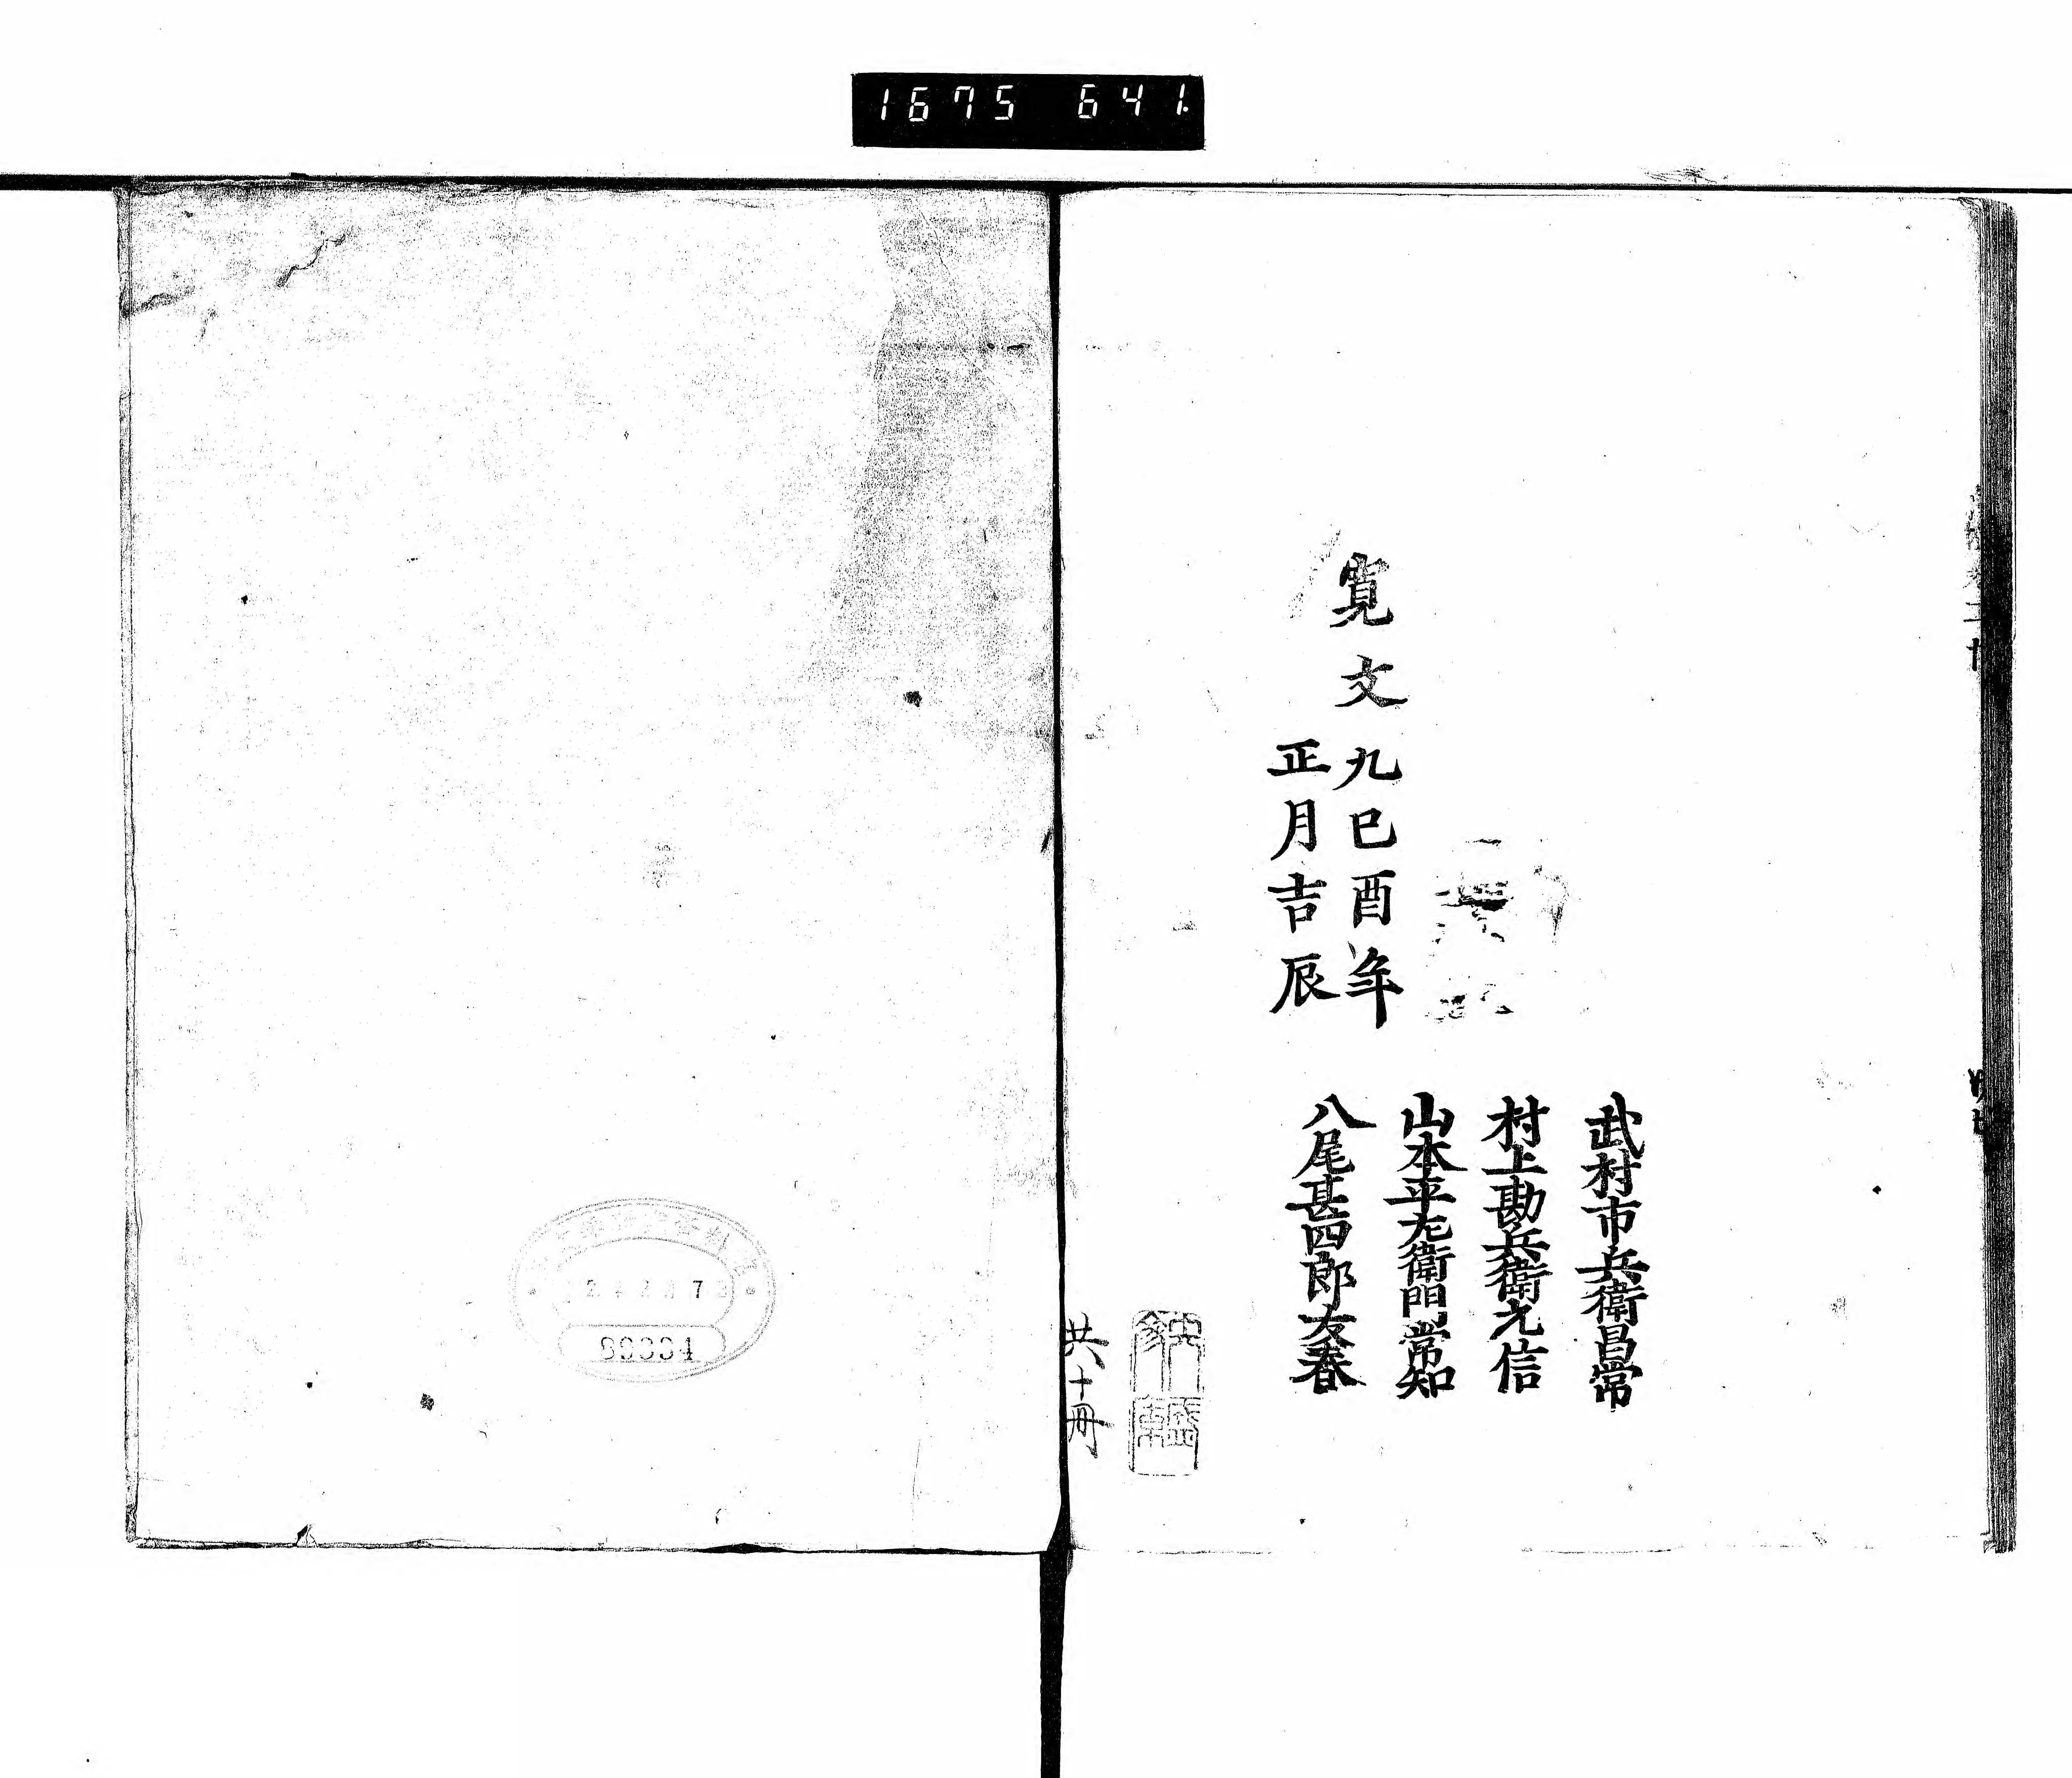 1675 641.
寛文
九巳酉年
正月吉辰
武村市兵衛昌常
村上勘兵衛元信
山本平左衛門常知
八尾甚四郎友春
共十冊